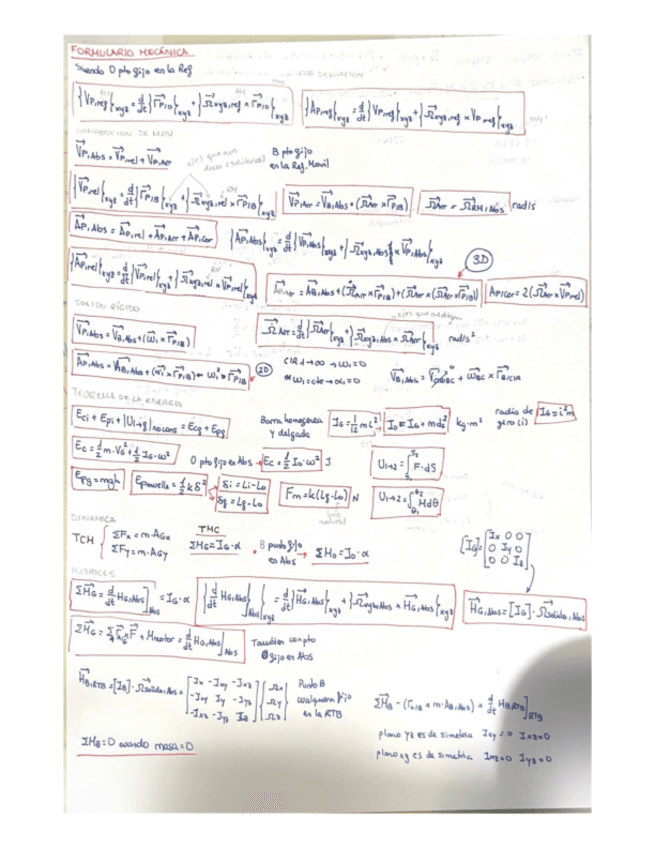 FORMULARIO MECÁNICA
Siendo O pto fijo en la Ref
{V⃗P,ref}xyz = d/dt {r⃗P/O}xyz + {Ω⃗xyz,ref × r⃗P/O}xyz   {A⃗P,ref}xyz = d/dt {V⃗P,ref}xyz + {Ω⃗xyz,ref × V⃗P,ref}xyz
COMPOSICION DE MOV
V⃗P,Abs = V⃗P,rel + V⃗P,Arr   B pto fijo
en la Ref. Movil
{V⃗P,rel}xyz = d/dt {r⃗P/B}xyz + {Ω⃗xyz,rel × r⃗P/B}xyz   V⃗P,Arr = V⃗B,Abs + (Ω⃗Arr × r⃗P/B)   Ω⃗Arr = Ω⃗RM,Abs rad/s
A⃗P,Abs = A⃗P,rel + A⃗P,Arr + A⃗P,cor   {A⃗P,Abs}xyz = d/dt {V⃗P,Abs}xyz + {Ω⃗xyz,Abs × V⃗P,Abs}xyz
3D
{A⃗P,rel}xyz = d/dt {V⃗P,rel}xyz + {Ω⃗xyz,rel × V⃗P,rel}xyz   A⃗P,Arr = A⃗B,Abs + (Ω⃗Arr × r⃗P/B) + (Ω⃗Arr × (Ω⃗Arr × r⃗P/B))   AP,cor = 2(Ω⃗Arr × V⃗P,rel)
SOLIDO RÍGIDO
V⃗P,Abs = V⃗B,Abs + (ω⃗i × r⃗P/B)   Ω⃗Arr = d/dt {Ω⃗Arr}xyz + {Ω⃗xyz,Abs × Ω⃗Arr}xyz rad/s²
A⃗P,Abs = A⃗B,Abs + (α⃗i × r⃗P/B) - ω² × r⃗P/B   2D   CIR 1→∞ → ω1=0
ω1=cte → α1=0
TEOREMA DE LA ENERGÍA
Eci + Epi + |U1→f|no cons = Ecf + Epf   Barra homogenea y delgada   IG = 1/12 mL²   IO = IG + md²   kg·m²   radio de giro (i)   IG = i²m
Ec = 1/2 m·VG² + 1/2 IG·ω²   O pto fijo en Abs → Ec = 1/2 IO·ω² J   U1→2 = ∫ F·dS
Epg = mgh   Epmuelle = 1/2 kδ²   δi = Li - Lo   δf = Lf - Lo   Fm = k(Lf - Lo) N   U1→2 = ∫ M dθ
DINAMICA
TCM { ΣFx = m·AGx   TMC
ΣFy = m·AGy   ΣMG = IG·α   B punto fijo en Abs → ΣMO = IO·α   [IG] = [Ix 0 0
0 Iy 0
0 0 Iz]
MATRICES
ΣM⃗G = d/dt H⃗G,Abs]Abs = IG·α   {d/dt H⃗G,Abs]Abs}xyz = d/dt {H⃗G,Abs}xyz + {Ω⃗xyz,Abs × H⃗G,Abs}xyz   H⃗G,Abs = [IG]·Ω⃗solido,Abs
ΣM⃗G = Σ r⃗ × F⃗ + Mmotor = d/dt HG,Abs]Abs   Tambien con pto
fijo en Abs
H⃗B,RTB = [IB]·Ω⃗solido,Abs = [Ix -Ixy -Ixz   {Ωx   Punto B
-Ixy Iy -Iyz   Ωy   cualquiera fijo
-Ixz -Iyz Iz]   Ωz}   en la RTB
ΣM⃗B - (rG/B × m·AB,Abs) = d/dt HB,RTB]RTB
plano yz es de simetria Ixy=0 Ixz=0
ΣMB=0 cuando masa=0
plano xy es de simetria Ixz=0 Iyz=0